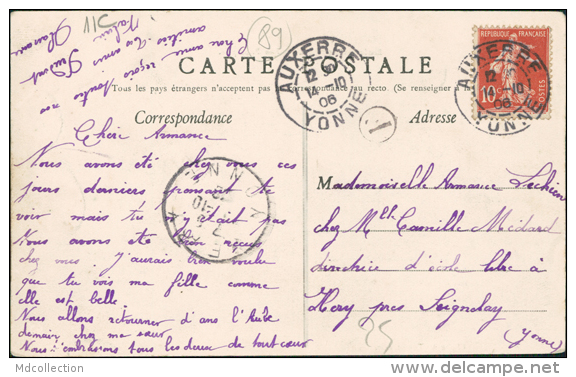 11c
(89)
CARTE POSTALE
Tous les pays étrangers n'acceptent pas la correspondance au recto. (Se renseigner
Correspondance
Adresse
AUXERRE
14-10
06
YONNE
AUXERRE
12
14-10
06
YONNE
REPUBLIQUE FRANÇAISE
10
POSTES
1
Chère Armance
Nous avons été chez vous ces
jours derniers pensant te
voir mais tu n'y était pas
Nous avons été bien reçus
chez mes j'aurais bien voulu
que tu vois ma fille comme
elle est belle.
Nous allons retourner d'ans l'Aube
demain chez ma sœur
Nous t'embrassons tous les deux de tout cœur
Mademoiselle Armance
chez Mlle Camille Médard
directrice d'école libre à
Héry près Seignelay
(Yonne)
25
Mdcollection
http://www.delcampe.net